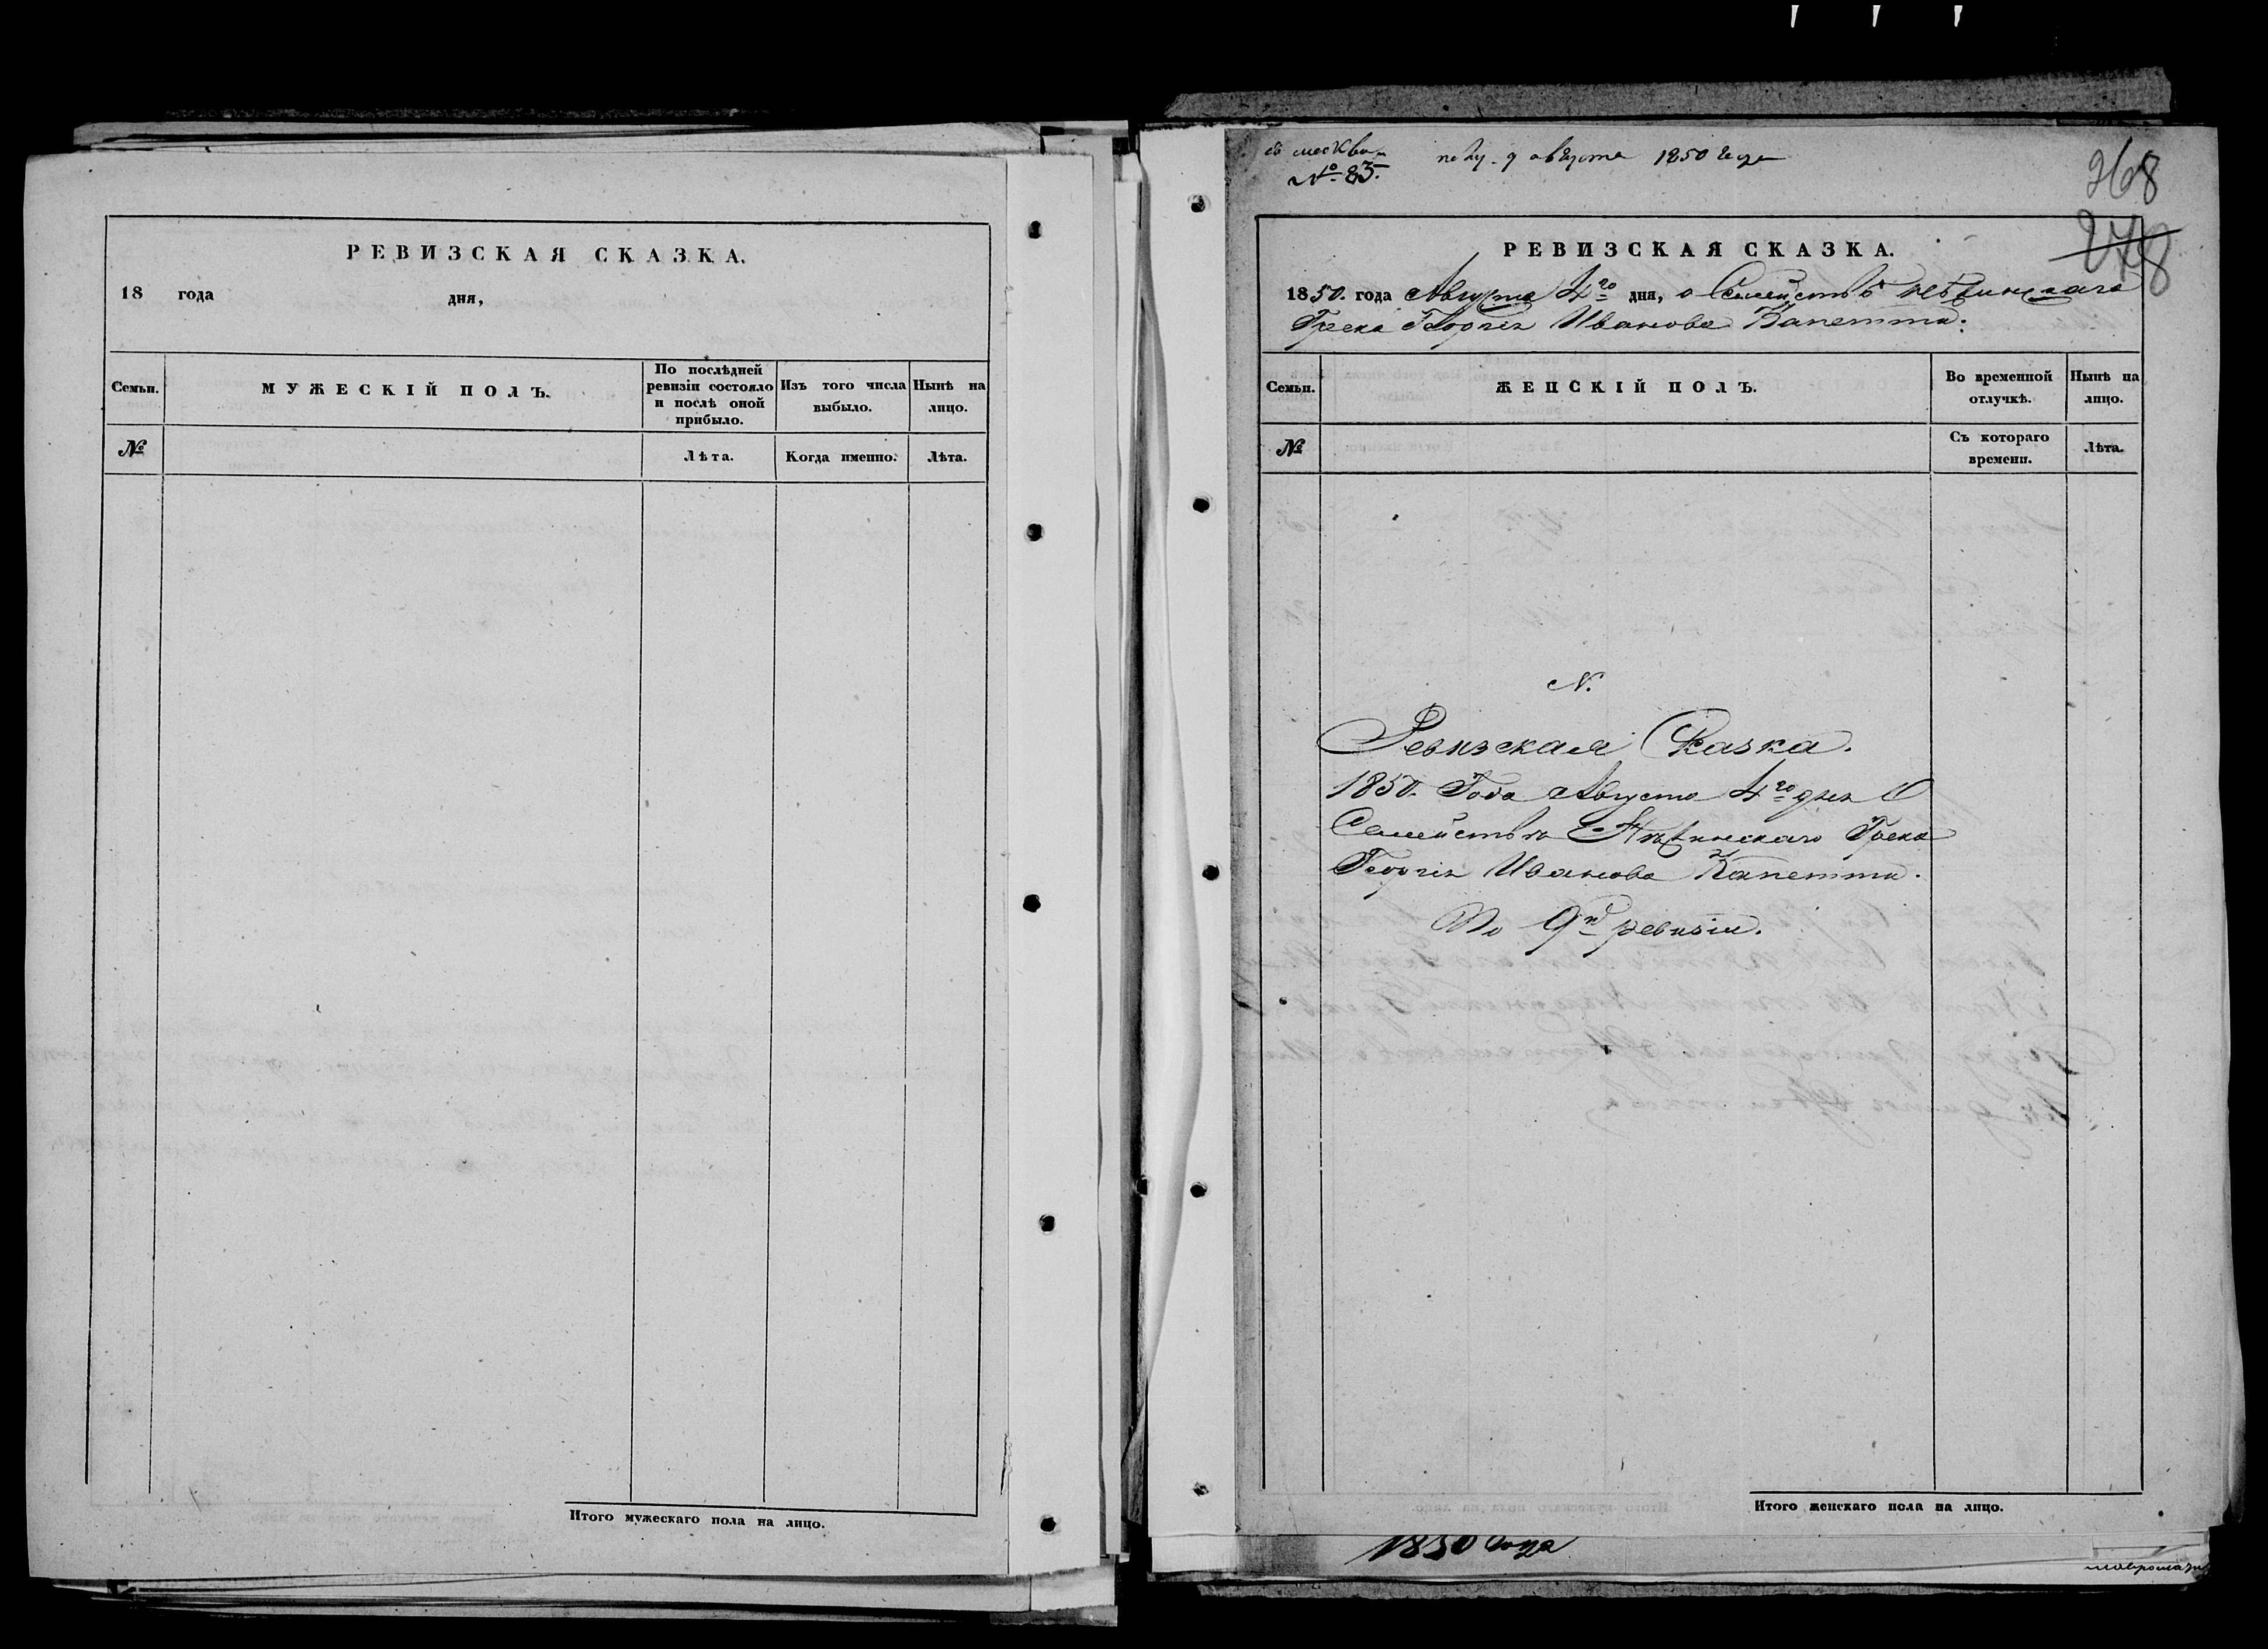 РЕВИЗСКАЯ СКАЗКА.
18 года дня,
Семьи.
МУЖЕСКІЙ ПОЛЪ.
По послѣдней ревизіи состояло и послѣ оной прибыло.
Изъ того числа выбыло.
Нынѣ на лицо.
№
Лѣта.
Когда именно.
Лѣта.
Итого мужескаго пола на лицо.
№ 23. полу. 9 августа 1850 года
268
278
РЕВИЗСКАЯ СКАЗКА.
1850. года Августа 4го дня, о Семействѣ нѣжинскаго
Грека Георгія Иванова Капетти.
Семьи.
ЖЕНСКІЙ ПОЛЪ.
Во временной отлучкѣ.
Нынѣ на лицо.
№
Съ котораго времени.
Лѣта.
N.
Ревизская Сказка.
1850. Года Августа 4го дня О
Семействѣ Нѣжинскаго Грека
Георгія Иванова Капетти.
По 9й ревизіи.
Итого женскаго пола на лицо.
1850 года